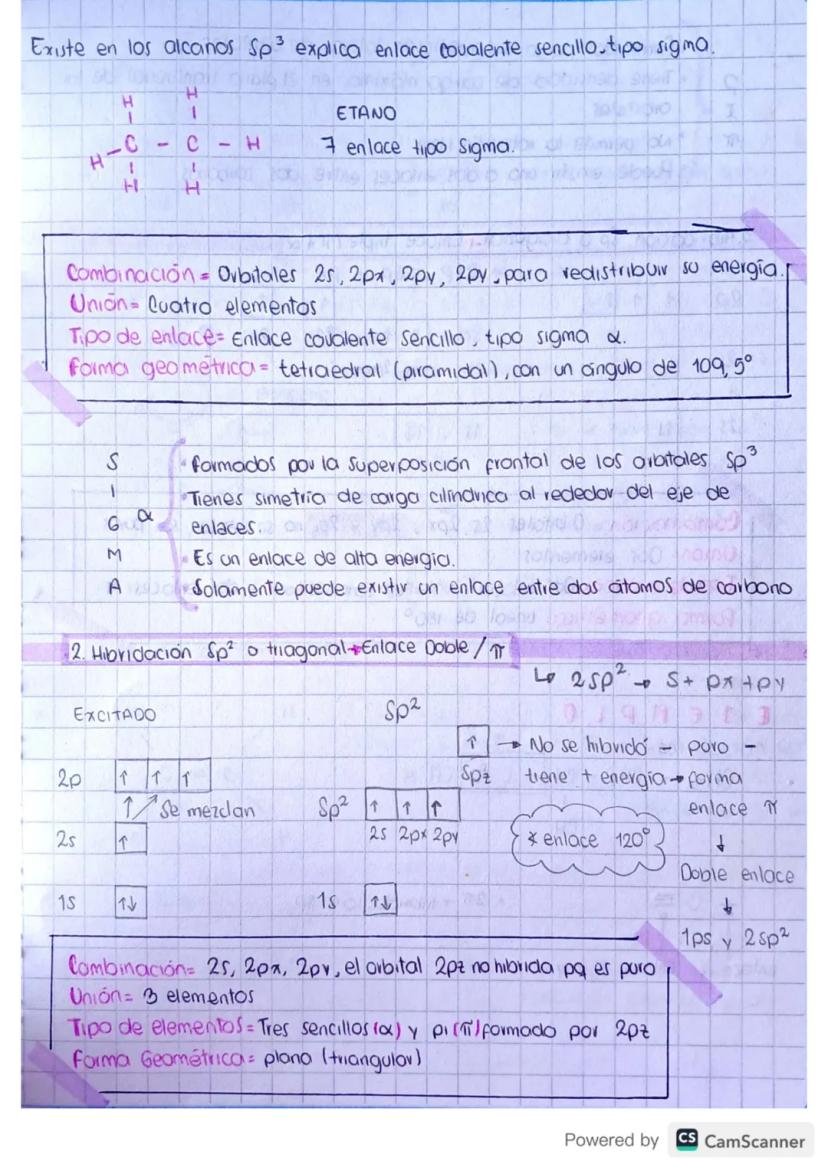 Existe en los alcanos Sp³ explica enlace covalente sencillo, tipo sigma.
H H
ETANO
H - C - C - H 7 enlace tipo Sigma.
H H
Combinación = Orbitales 2s, 2px, 2py, 2py, para redistribuir su energía.
Unión = Cuatro elementos
Tipo de enlace = Enlace covalente Sencillo, tipo sigma α.
Forma geométrica = tetraedral (piramidal), con un ángulo de 109,5°
SIGMA α
• formados por la superposición frontal de los orbitales Sp³
• Tienes simetría de carga cilíndrica al rededor del eje de
enlaces.
• Es un enlace de alta energía.
• Solamente puede existir un enlace entre dos átomos de carbono
2. Hibridación Sp² o triagonal → Enlace Doble / π
↳ 2sp² → S + px + py
EXCITADO Sp²
↑ → No se hibridó - puro -
2p ↑ ↑ ↑ Spz tiene + energía → forma
↑ ↗ Se mezclan Sp² ↑ ↑ ↑ enlace π
2s ↑ 2s 2px 2py * enlace 120° ↓
Doble enlace
1s ↑↓ 1s ↑↓ ↓
1ps y 2sp²
Combinación = 2s, 2px, 2py, el orbital 2pz no hibrida pq es puro
Unión = 3 elementos
Tipo de elementos = Tres sencillos (α) y pi (π) formado por 2pz
Forma Geométrica = plano (triangular)
Powered by CS CamScanner